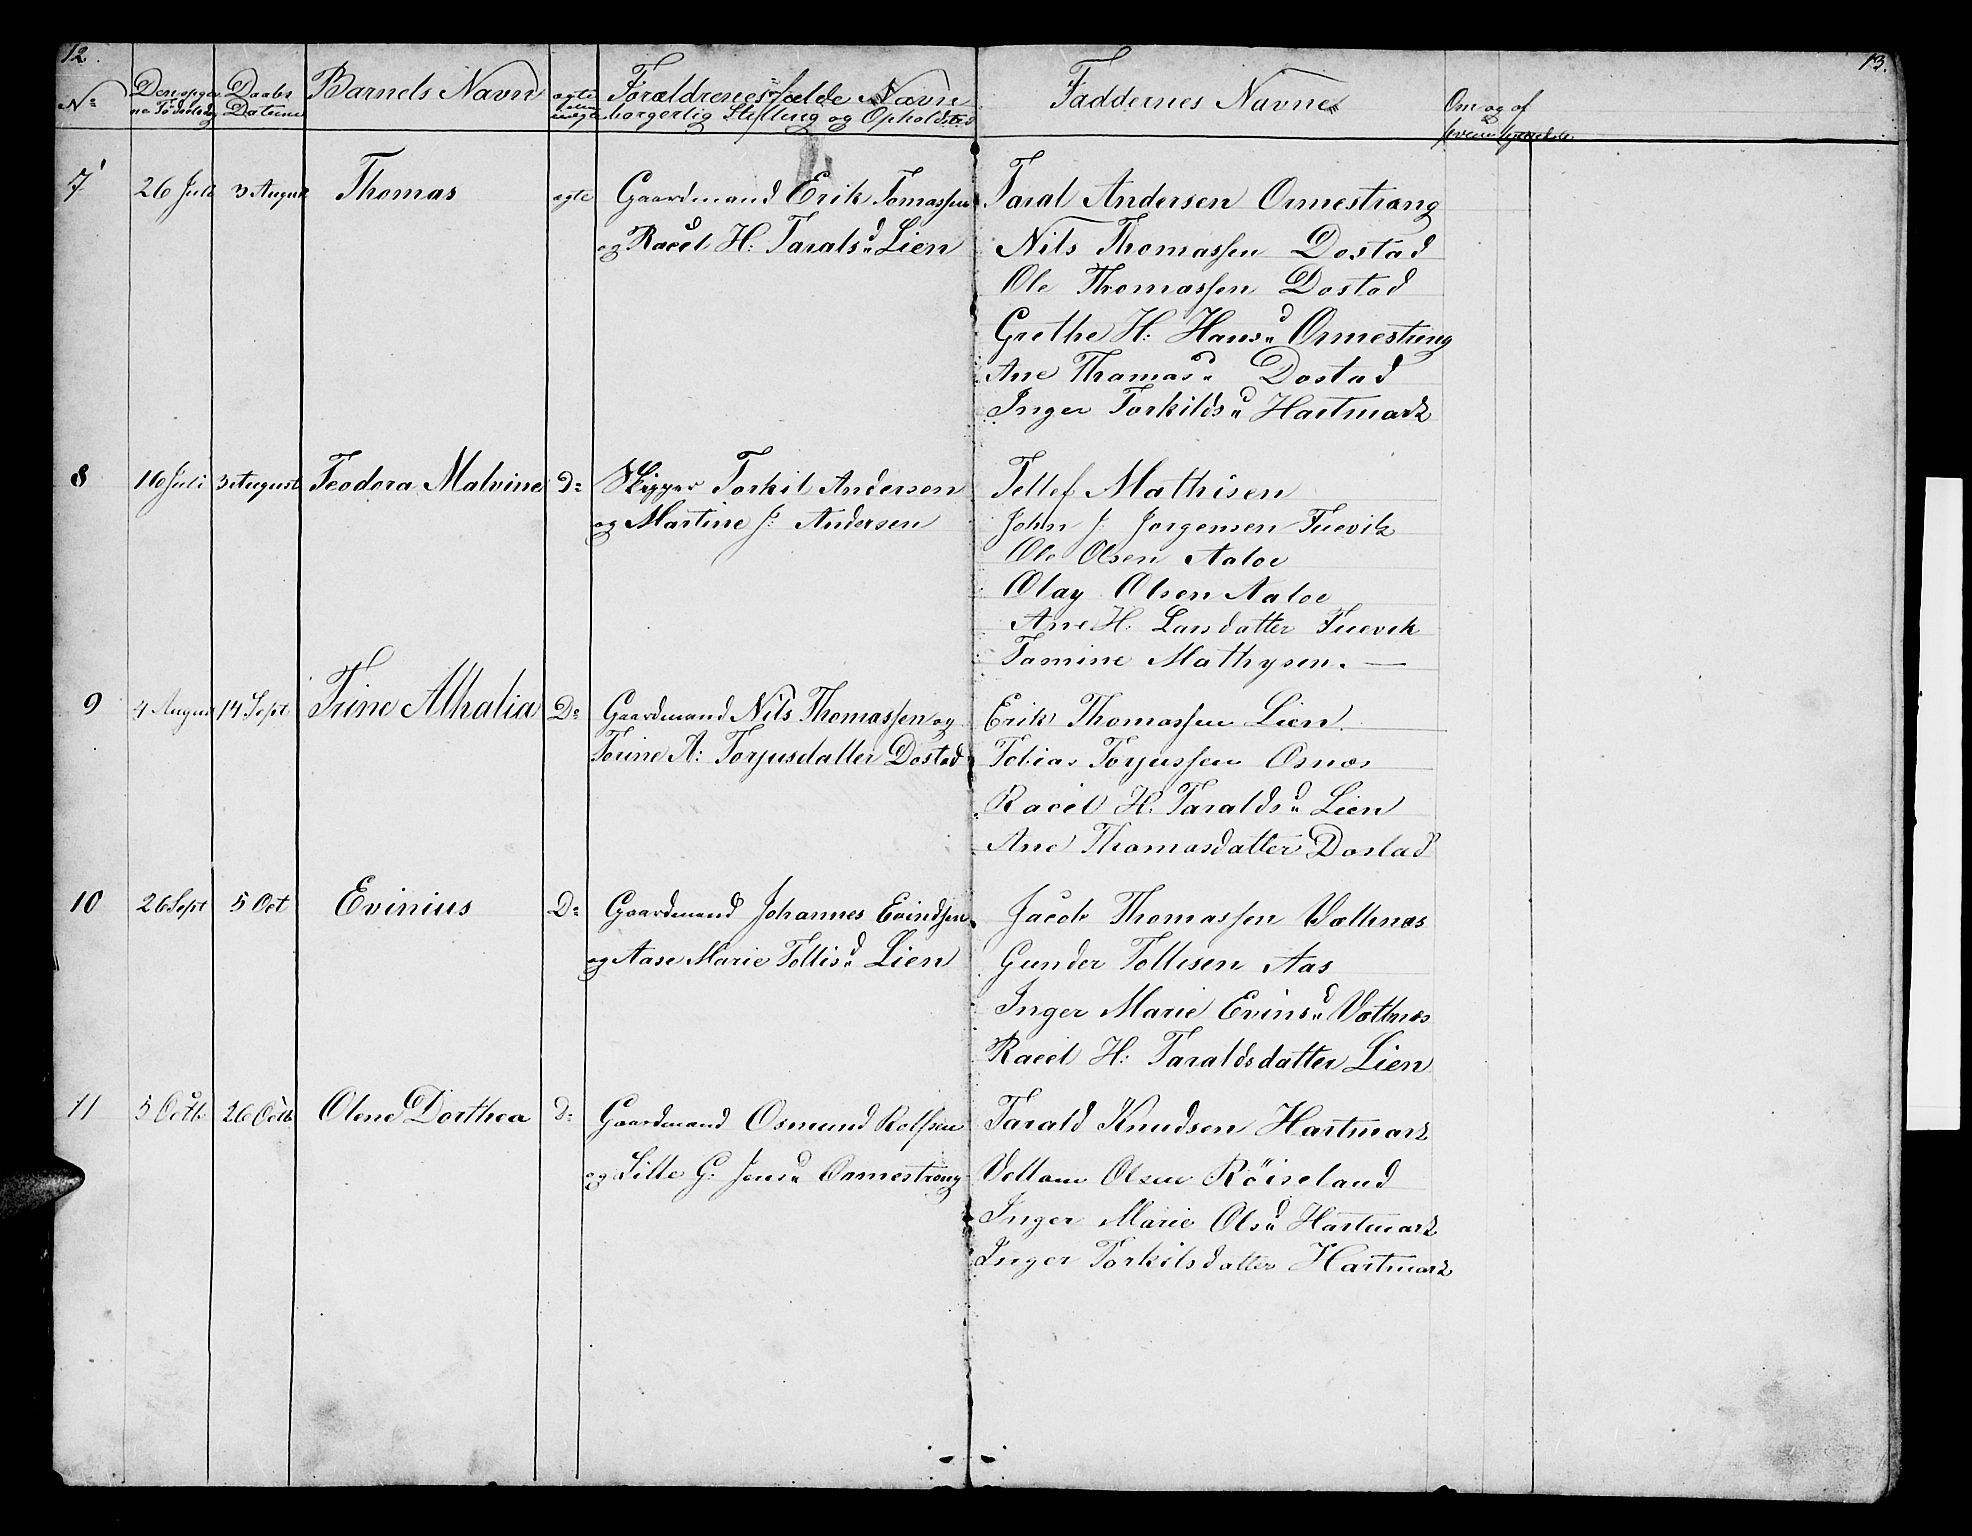 12.
13.
No
Daabs
Datum
Barnets Navn
ægte
Forældrenes fulde Navn
borgerlig Stilling og Opholdsted
Faddernes Navne
Om og af
7
26 Juli
3 August
Thomas
ægte
Gaardmand Erik Tomassen
og Racel H: Taralsd Lien
Taral Andersen Ormestrang
Nils Thomassen Dostad
Ole Thomassen Dostad
Grethe H: Hansd Ormestrng
Ane Thomasd Dostad
Inger Torkildsd Hartmark
8
16 Juli
3 August
Teodora Malvine
Do
Skipper Torkil Andersen
og Martine J: Andersen
Tellef Mathisen
John J: Jorgensen Tuevik
Ole Olsen Aaloe
Olay Olsen Aaloe
Ane H. Larsdatter Tuevik
Tomine Mathysen. —
9
4 August
14 Sept
Trine Athalia
Do
Gaardmand Nils Thomassen og
Torine A: Torjusdatter Dostad
Erik Thomassen Lien
Tobias Torjussen Osnæs
Racel H. Taraldsd Lien
Ane Thomasdatter Dostad
10
26 Sept
5 Oct
Evinius
Do
Gaardmand Johannes Evindsen
og Aase Marie Tollisd Lien
Jacob Thomassen Vattnæs
Gunder Tollesen Aas
Inger Marie Evinsd Vattnæs
Racel H: Taraldsdatter Lien
11
5 Octb
26 Octb
Olene Dorthea
Do
Gaardmand Osmund Rolfsen
og Sille G: Jensd Ormestrong
Tarald Knudsen Hartmark
Vollom Olsen Röiseland
Inger Marie Olsd Hartmark
Inger Torkilsdatter Hartmark